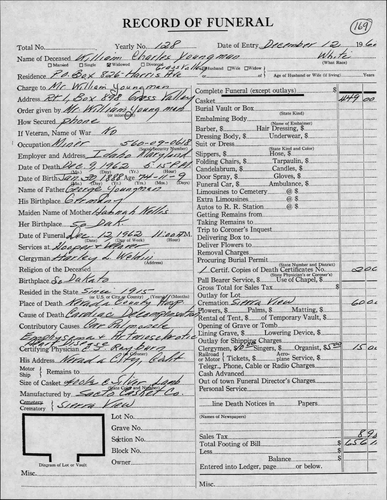 RECORD OF FUNERAL
169
Total No. Yearly No. 128 Date of Entry December 12, 196
Name of Deceased William Charles Youngman White
Married Single Widowed Divorced Husband Wife Widow (What Race)
Residence P.O. Box 826 Harris Ave Grass Valley Age of Husband or Wife (if living) Years
Charge to Mr William Youngman
Address Rt 1, Box 898 Grass Valley
Order Given by Mr. William Youngman
How Secured phone
If Veteran, Name of War No
Occupation Miner 560-09-0618
Employer and Address Idaho Maryland
Date of Death Dec 9, 1962 5:15 PM
Date of Birth Jan 30, 1888 74-11-9
Name of Father George Youngman
His Birthplace Germany
Maiden Name of Mother Hannah
Her Birthplace So Dak.
Date of Funeral Dec 12, 1962 11:00 AM
Services at Hooper & Weaver
Clergyman
Religion of the Deceased
Birthplace So Dakota
Resided in the State Since 1915
Place of Death Nevada County Hosp
Cause of Death Cardiac Decompensation
Contributory Causes Cor Pulmonale
Emphysema &
Certifying Physician
His Address Nevada City, Calif
Motor
Ship
Size of Casket
Manufactured by Sacto Casket Co.
Cemetery
Crematory Sierra View
Lot No.
Grave No.
Section No.
Block No.
Owner
Diagram of Lot or Vault
Misc.
Complete Funeral (except outlays) $
Casket 449.00
Burial Vault or Box
(State Kind)
Embalming Body
(Name of Embalmer)
Barber, $ Hair Dressing, $
Dressing Body, $ Underwear, $
Suit or Dress
(State Kind and Color)
Slippers, $ Hose, $
Folding Chairs, $ Tarpaulin, $
Candelabrum, $ Candles, $
Door Spray, $ Gloves, $
Funeral Car, $ Ambulance, $
Limousines to Cemetery @ $
Extra Limousines @ $
Autos to R. R. Station @ $
Getting Remains from
Taking Remains to
Trip to Coroner's Inquest
Delivering Box to
Deliver Flowers to
Removal Charges
Procuring Burial Permit
1 Certif. Copies of Death Certificates No. 2.00
(State Physician's or Coroner's)
Pall Bearer Service, $ Use of Chapel, $
Gross Total for Sales Tax $
Outlay for Lot
Cremation Sierra View 60.00
Flowers, $ Palms, $ Matting, $
Rental of Tent, $ of Temporary Vault, $
Opening of Grave or Tomb
Lining Grave, $ Lowering Device, $
Outlay for Shipping Charges
Clergyman, $ Singers, $ Organist, $5.00 15.00
Railroad or Motor Tickets, $ Aeroplane Service, $
Telegr., Phone, Cable or Radio Charges
Cash Advanced
Out of town Funeral Director's Charges
Personal Service
line Death Notices in Papers
(Names of Newspapers)
Sales Tax 8.98
Total Footing of Bill $
Less
Balance $
Entered into Ledger, page or below.
Misc.